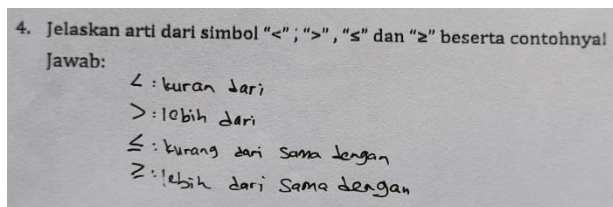 4. Jelaskan arti dari simbol “<” ; “>” , “≤” dan “≥” beserta contohnya!
Jawab:
< : kuran dari
> : lebih dari
≤ : kurang dari sama dengan
≥ : lebih dari sama dengan